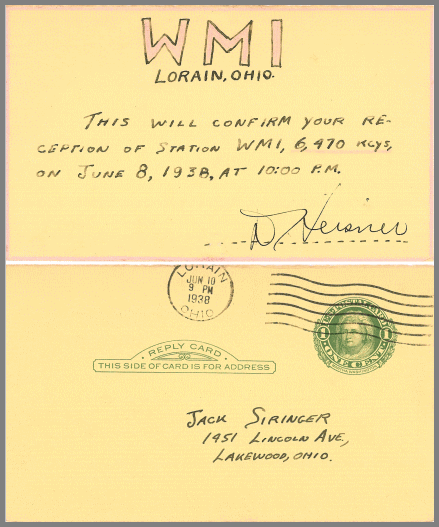 WMI
LORAIN, OHIO.
THIS WILL CONFIRM YOUR RE-
CEPTION OF STATION WMI, 6,470 KCYS,
ON JUNE 8, 1938, AT 10:00 P.M.
D. Heisner
LORAIN
JUN 10
9 PM
1938
OHIO
1 1
ONE CENT
REPLY CARD
THIS SIDE OF CARD IS FOR ADDRESS
JACK SIRINGER
1451 LINCOLN AVE.,
LAKEWOOD, OHIO.